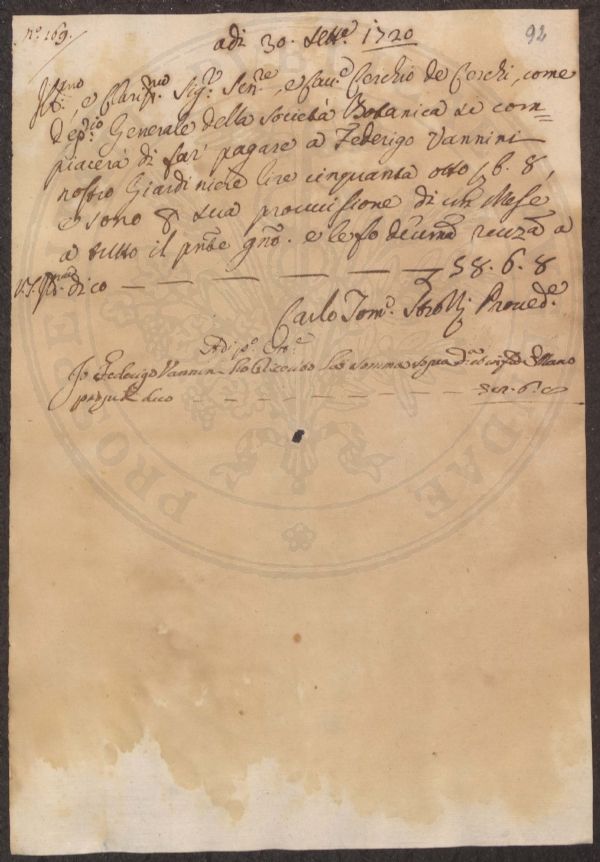 N.º 169.
92
adi 30. Sett.e 1720
Ill.mo, e Clariss.mo Sig.r Sen.re, e Cav.e Cerchio de Cerchi, come
Dep.rio Generale della Società Botanica si com=
piacerà di far pagare a Federigo Vannini
nostro Giardiniere lire cinquanta otto 6. 8,
e sono p sua provvisione di un Mese
a tutto il pnte gno. e
a
V.S. Ill.ma dico — — — — — — 58. 6. 8
Carlo Tom.o Strozzi Proved.e
Adi p.o Ott.e
Io Federigo Vannini ho ricevuto la somma sopra d.a
dico — — — — — —
PROSPE
DAE